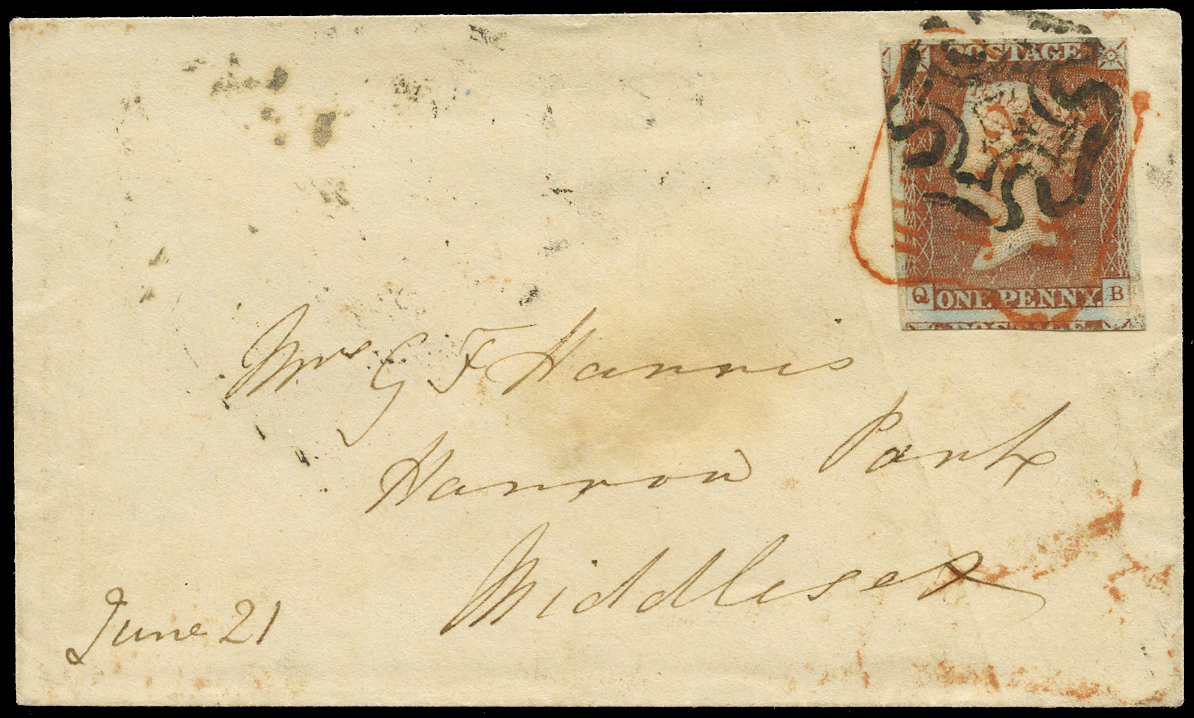 POSTAGE
Q ONE PENNY. B
POSTAGE
Mrs G F Harris
Harrow Park
Middlesex
June 21